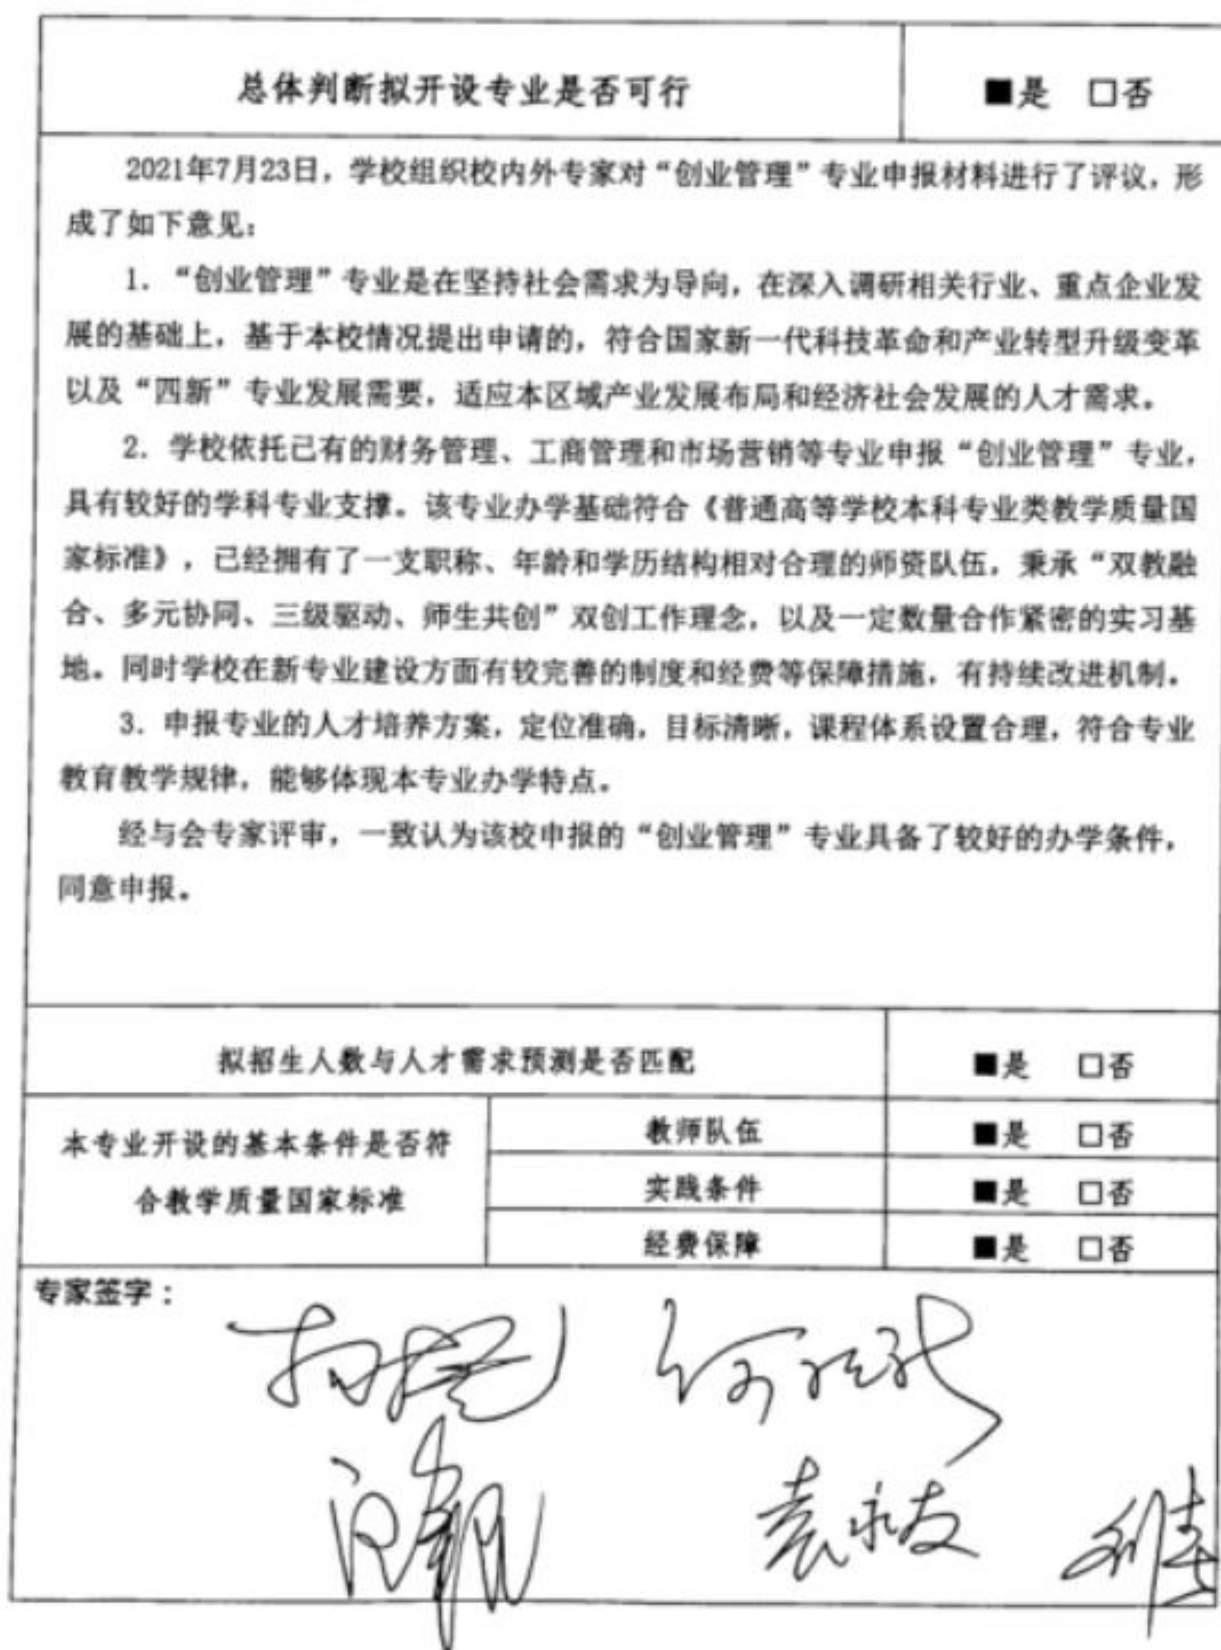 总体判断拟开设专业是否可行 ■是 □否
2021年7月23日，学校组织校内外专家对“创业管理”专业申报材料进行了评议，形
成了如下意见：
1．“创业管理”专业是在坚持社会需求为导向，在深入调研相关行业、重点企业发
展的基础上，基于本校情况提出申请的，符合国家新一代科技革命和产业转型升级变革
以及“四新”专业发展需要，适应本区域产业发展布局和经济社会发展的人才需求。
2．学校依托已有的财务管理、工商管理和市场营销等专业申报“创业管理”专业，
具有较好的学科专业支撑。该专业办学基础符合《普通高等学校本科专业类教学质量国
家标准》，已经拥有了一支职称、年龄和学历结构相对合理的师资队伍，秉承“双教融
合、多元协同、三级驱动、师生共创”双创工作理念，以及一定数量合作紧密的实习基
地。同时学校在新专业建设方面有较完善的制度和经费等保障措施，有持续改进机制。
3．申报专业的人才培养方案，定位准确，目标清晰，课程体系设置合理，符合专业
教育教学规律，能够体现本专业办学特点。
经与会专家评审，一致认为该校申报的“创业管理”专业具备了较好的办学条件，
同意申报。
拟招生人数与人才需求预测是否匹配 ■是 □否
本专业开设的基本条件是否符
合教学质量国家标准
教师队伍 ■是 □否
实践条件 ■是 □否
经费保障 ■是 □否
专家签字：
袁永友